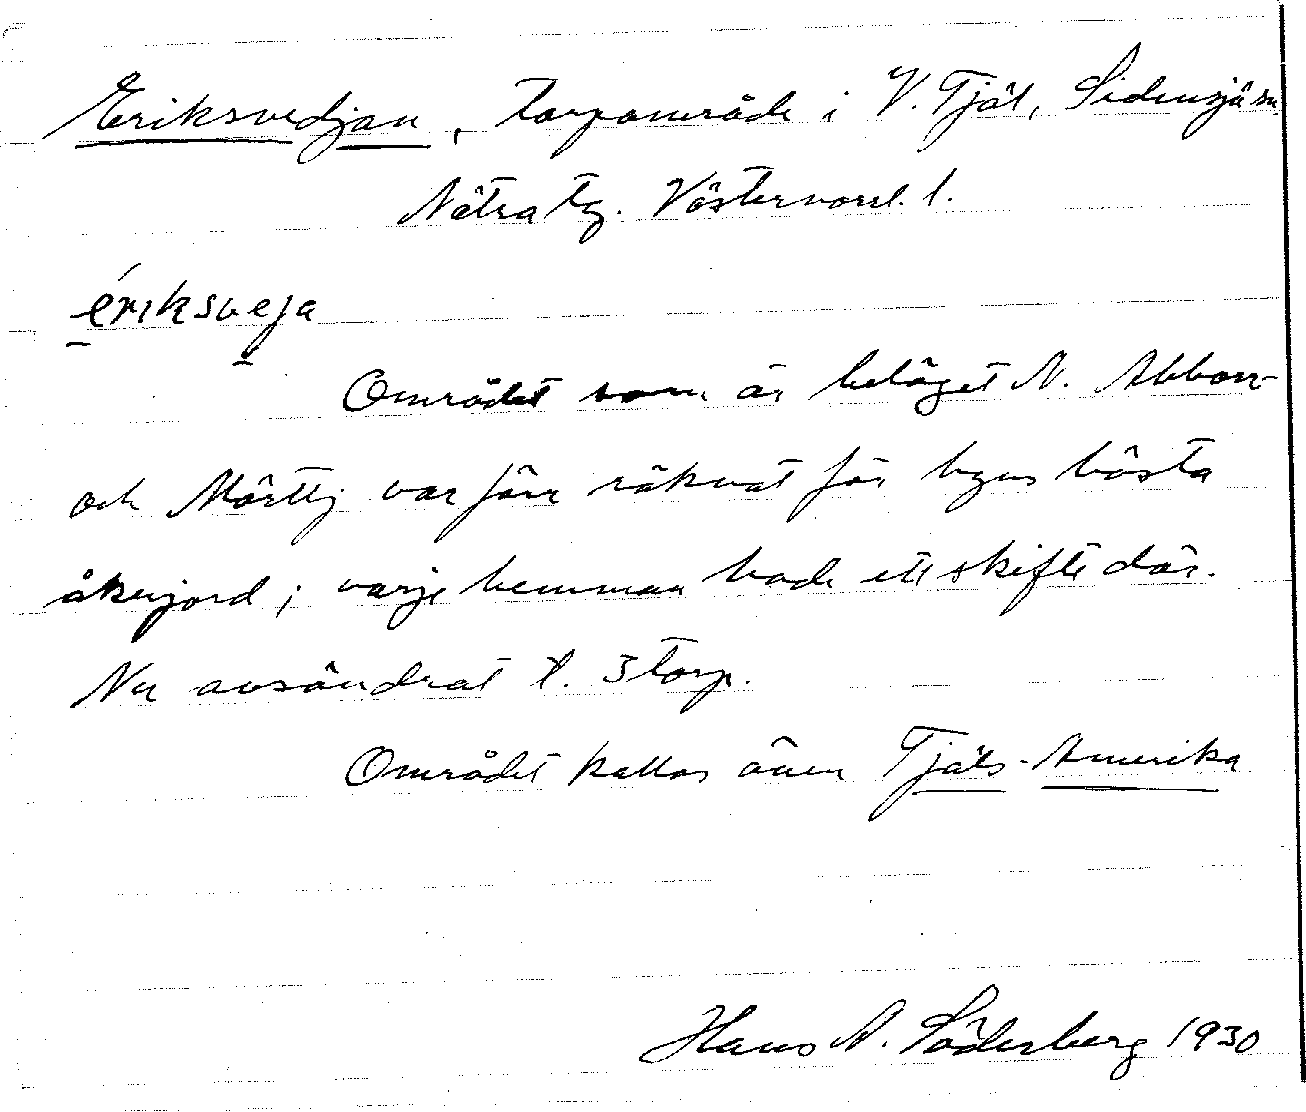 Eriksvedjan, Torpområde i V. Tjäl, Sidensjö sn
Nätra tg. Västernorrl. l.
ériksveja
Området som är beläget N. Abborr-
och Mörttj var förr räknat för byns bästa
åkerjord; varje hemman hade ett skifte där.
Nu avsöndrat t. 3 torp.
Området kallas även Tjäls-Amerika
Hans N. Söderberg 1930